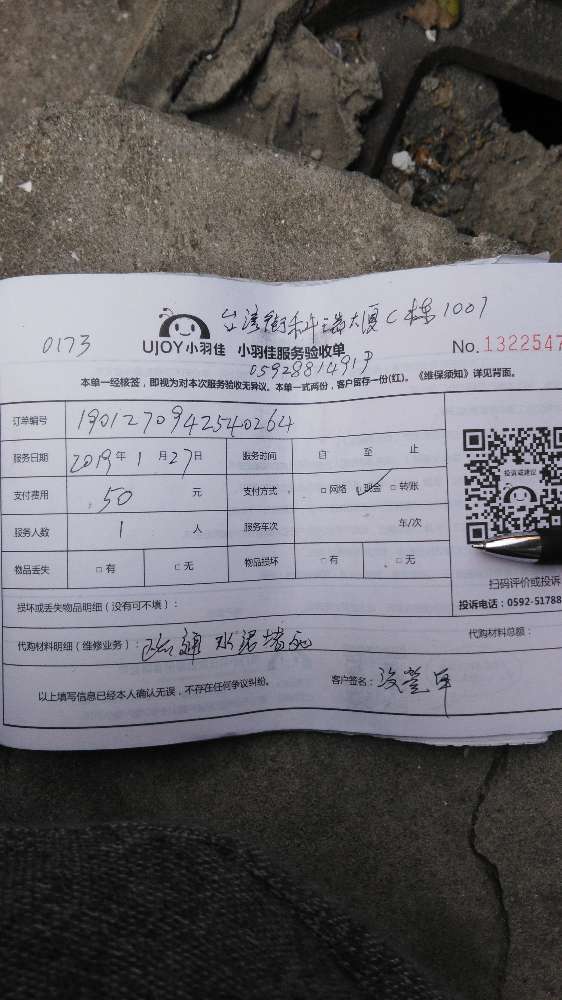 台湾街禾祥瑞大厦C栋1007
0173
UJOY小羽佳 小羽佳服务验收单 No.1322547
本单一经核签，即视为对本次服务验收无异议。本单一式两份，客户留存一份(红)。《维保须知》详见背面。
订单编号 190127094254 0264
服务日期 2019年1月27日 服务时间 自 至 止
支付费用 50 元 支付方式 □网络 □现金 □转账
服务人数 1 人 服务车次 年/次
物品丢失 □有 □无 物品损坏 □有 □无
投诉或建议
扫码评价或投诉
投诉电话：0592-51788
损坏或丢失物品明细（没有可不填）：
代购材料明细（维修业务）： 疏通水 代购材料总额：
以上填写信息已经本人确认无误，不存在任何争议纠纷。 客户签名：